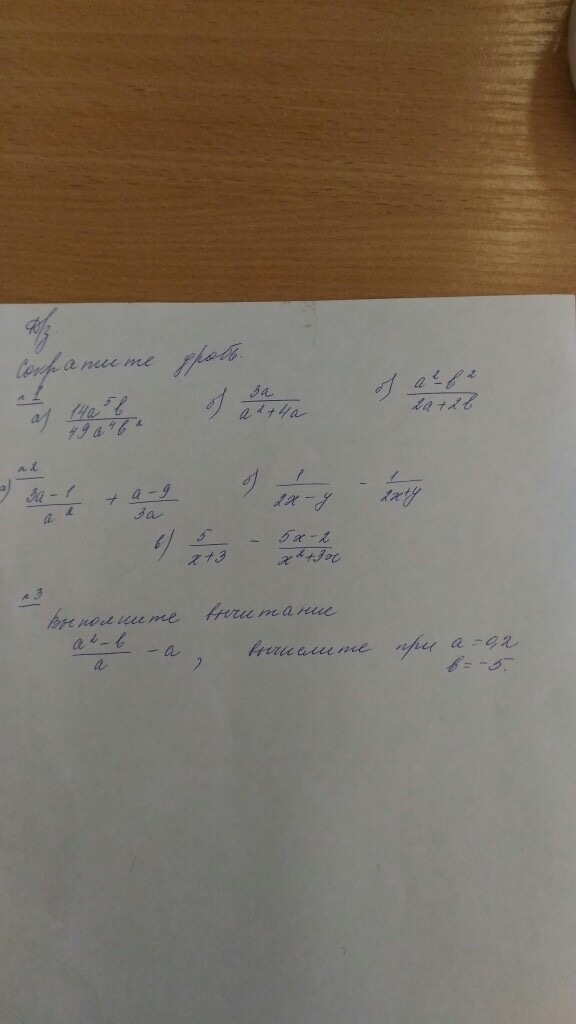 Д/з.
Сократите дробь.
№1
а) 14a⁵b / 49a⁴b² б) 3a / a²+4a б) a²-b² / 2a+2b
№2
а) 3a-1 / a² + a-9 / 3a б) 1 / 2x-y - 1 / 2x+y
в) 5 / x+3 - 5x-2 / x²+3x
№3
Выполните вычитание
a²-b / a - a, вычислите при a=0,2
b=-5.